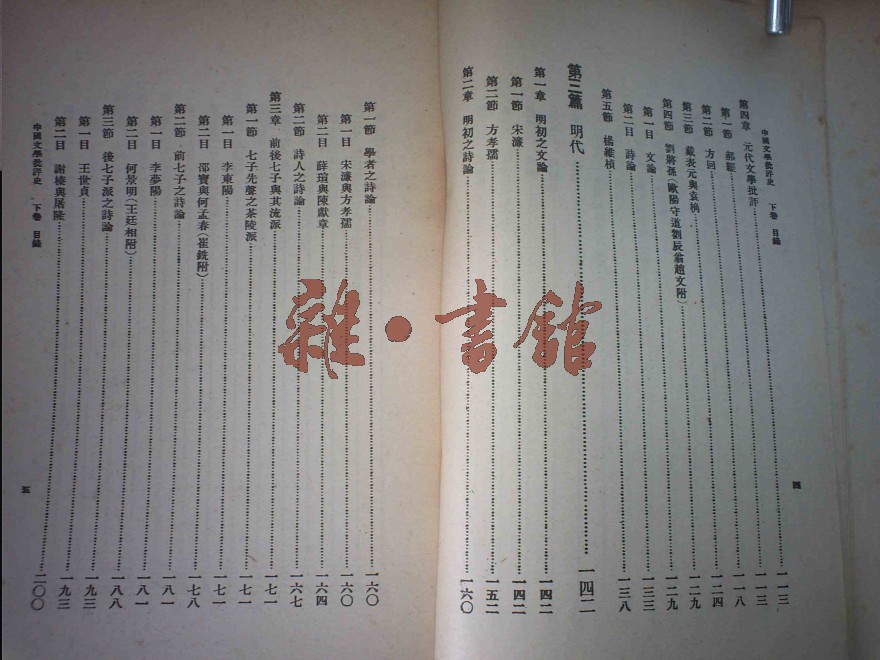 中國文學批評史 下卷 目錄
四
第四章 元代文學批評……一一三
第一節 郝經……一一三
第二節 方回……一一八
第三節 戴表元與袁桷……一二四
第四節 劉將孫(歐陽守道劉辰翁趙文附)……一二九
第一目 文論……一二九
第二目 詩論……一三三
第五節 楊維楨……一三八
第三篇 明代……一四二
第一章 明初之文論……一四二
第一節 宋濂……一四二
第二節 方孝孺……一五二
第二章 明初之詩論……一六〇
第一節 學者之詩論……一六〇
第一目 宋濂與方孝孺……一六〇
第二目 薛瑄與陳獻章……一六四
第二節 詩人之詩論……一六七
第三章 前後七子與其流派……一七一
第一節 七子先聲之茶陵派……一七一
第一目 李東陽……一七一
第二目 邵寶與何孟春(崔銑附)……一七八
第二節 前七子之詩論……一八一
第一目 李夢陽……一八一
第二目 何景明(王廷相附)……一八八
第三節 後七子派之詩論……一九三
第一目 王世貞……一九三
第二目 謝榛與屠隆……二〇〇
中國文學批評史 下卷 目錄
五
雜·書館